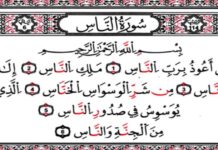 سُورَةُ النَّاسِ
بِسْمِ اللَّهِ الرَّحْمَٰنِ الرَّحِيمِ
أَعُوذُ بِرَبِّ النَّاسِ مَلِكِ النَّاسِ إِلَـ
مِن شَرِّ الْوَسْوَاسِ الْخَنَّاسِ الَّذِي
يُوَسْوِسُ فِي صُدُورِ النَّاسِ
مِنَ الْجِنَّةِ وَالنَّاسِ